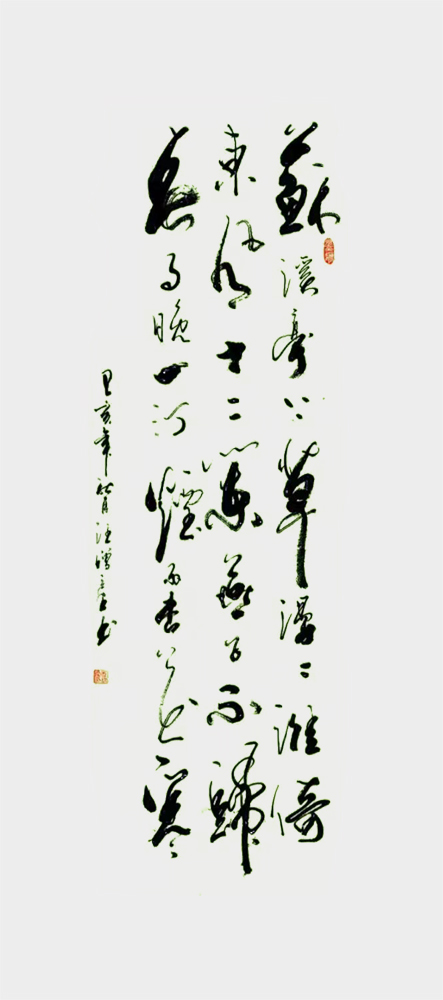 蘇溪亭上草漫漫誰倚
東風十二闌燕子不歸
春事晚一汀煙雨杏花寒
己亥年 月汪 书